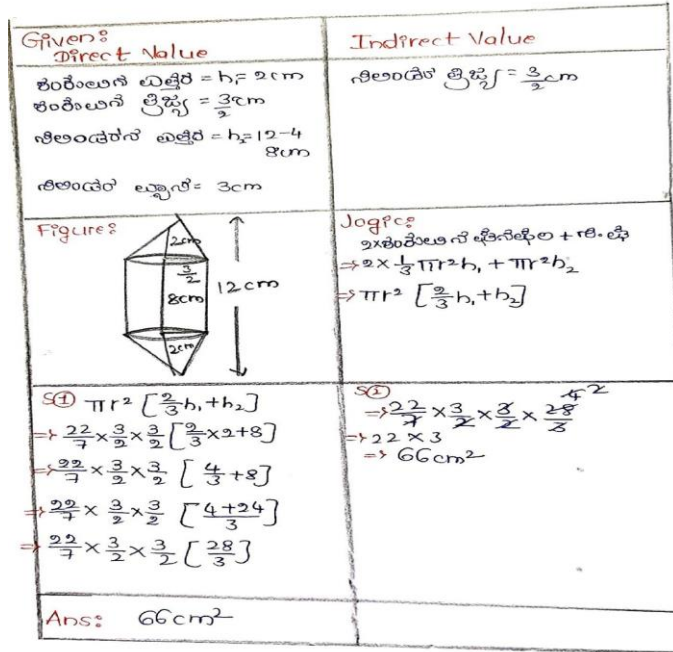 Given:
Direct Value
ಶಂಕುವಿನ ಎತ್ತರ = h₁ = 2cm
ಶಂಕುವಿನ ತ್ರಿಜ್ಯ = 3/2 cm
ಸಿಲಿಂಡರನ ಎತ್ತರ = h₂ = 12-4
8cm
ಸಿಲಿಂಡರ ವ್ಯಾಸ = 3cm
Indirect Value
ಸಿಲಿಂಡರ ತ್ರಿಜ್ಯ = 3/2 cm
Figure:
2cm
3/2
8cm
12cm
2cm
Logic:
⇒ 2 × 1/3 πr²h₁ + πr²h₂
⇒ πr² [2/3 h₁ + h₂]
S① πr² [2/3 h₁ + h₂]
⇒ 22/7 × 3/2 × 3/2 [2/3 × 2 + 8]
⇒ 22/7 × 3/2 × 3/2 [4/3 + 8]
⇒ 22/7 × 3/2 × 3/2 [4+24/3]
⇒ 22/7 × 3/2 × 3/2 [28/3]
S②
⇒ 22/7 × 3/2 × 3/2 × 28/3 4 2
⇒ 22 × 3
⇒ 66cm²
Ans: 66cm²